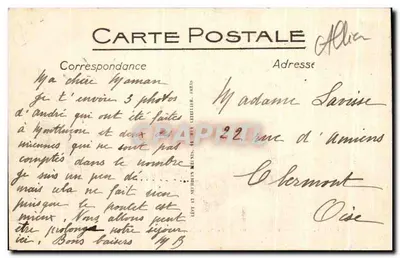 CARTE POSTALE
Allier
Correspondance
Adresse
Ma chère Maman
Je t'envoie 3 photos
d'andré qui ont été faites
à Montluçon et deux
miennes qui ne sont pas
comptés dans le nombre
je suis un peu dé...
mais cela ne fait rien
puisque le poulet est
mieux. Nous allons peut
être prolonger notre séjour
ici. Bons baisers MB
Madame Savise
22 rue d'amiens
Clermont
Oise